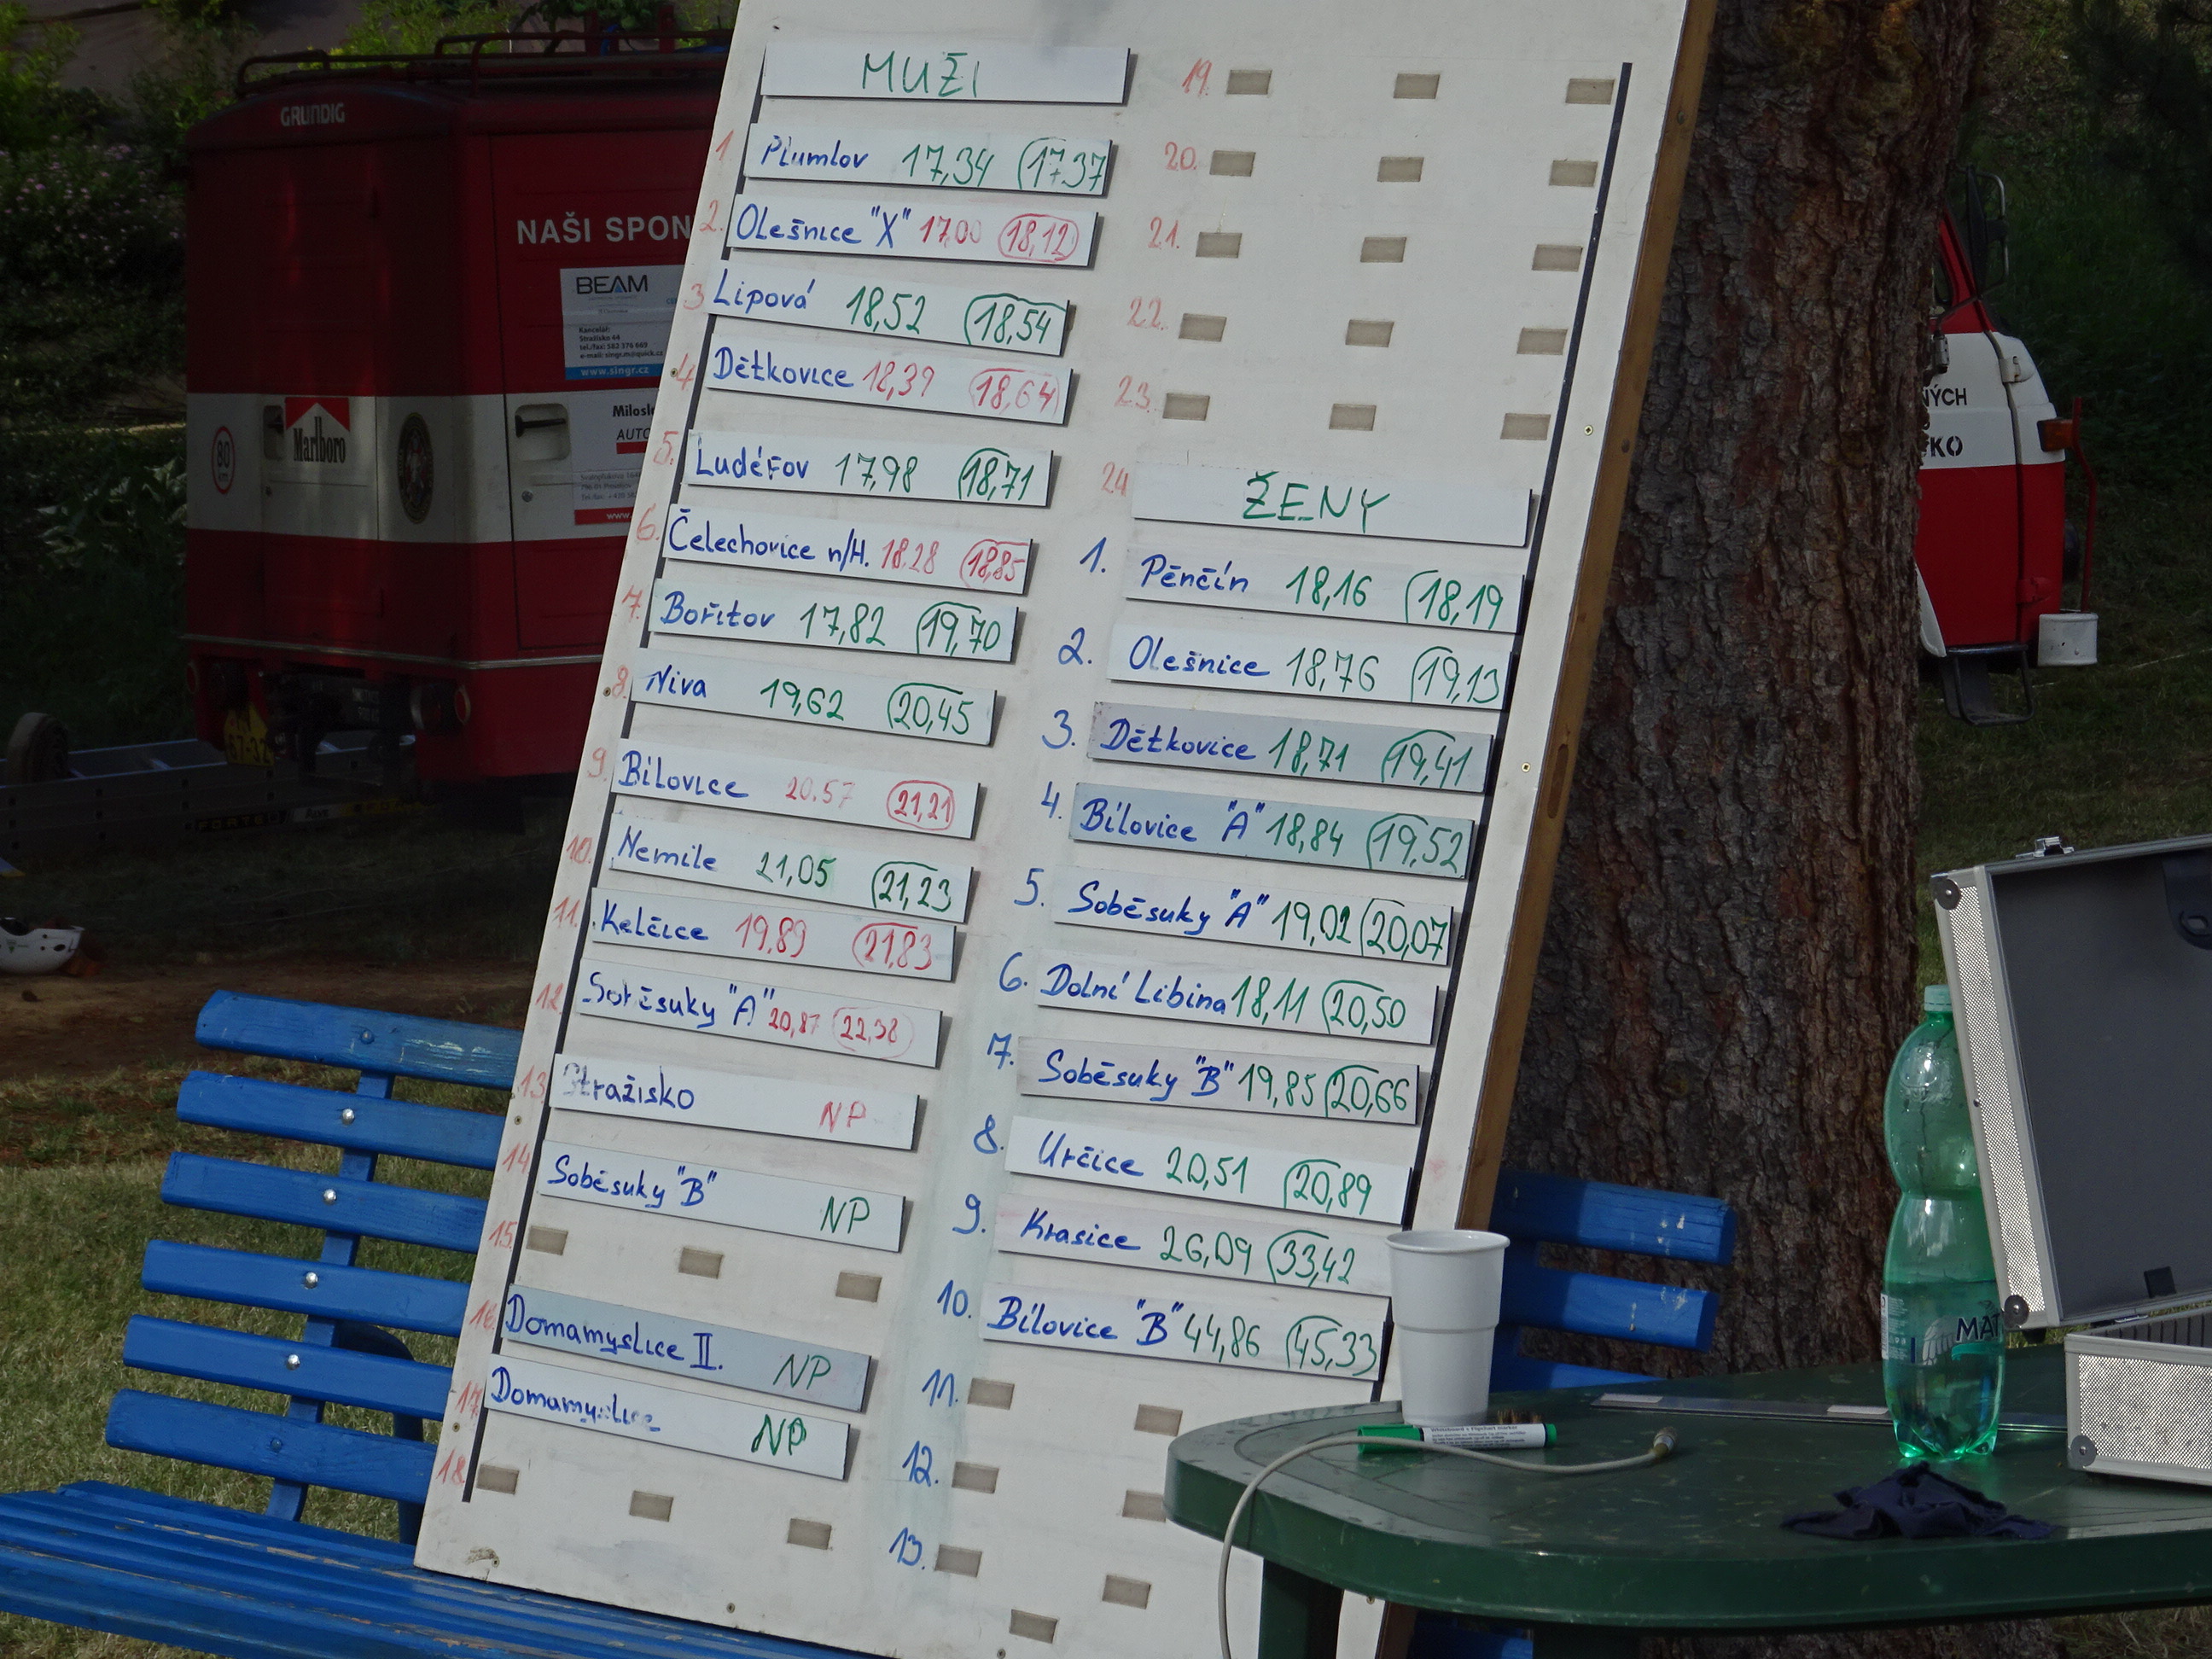 MUŽI
1. Plumlov 17,34 (17,37
2. Olešnice "X" 17,00 (18,12)
3 Lipová 18,52 (18,54
4 Dětkovice 18,39 (18,64)
5. Luděřov 17,98 (18,71
6. Čelechovice n/H. 18.28 (18,85
7. Bořitov 17,82 (19,70
8. Niva 19,62 (20,45
9. Bílovice 20.57 (21,21)
10. Nemile 21,05 (21,23
11. Kelčice 19,89 (21,83
12. Soběsuky "A" 20,87 (22,38)
13. Stražisko NP
14. Soběsuky "B" NP
15.
16. Domamyslice II. NP
17. Domamyslice NP
18.
19.
20.
21.
22.
23.
24
ŽENY
1. Pěnčín 18,16 (18,19
2. Olešnice 18,76 (19,13
3. Dětkovice 18,71 (19,41
4. Bílovice "A" 18,84 (19,52
5. Soběsuky "A" 19,02 (20,07
6. Dolní Libina 18,11 (20,50
7. Soběsuky "B" 19,85 (20,66
8. Určice 20,51 (20,89
9. Krasice 26,09 (33,42
10. Bílovice "B" 44,86 (45,33
11.
12.
13.
GRUNDIG
NAŠI SPON
BEAM
Kancelář:
Stražisko 44
tel./fax: 582 376 669
e-mail: singr.m@quick.cz
www.singr.cz
Marlboro
80
AUTO
www.
ÝCH
KO
MAT